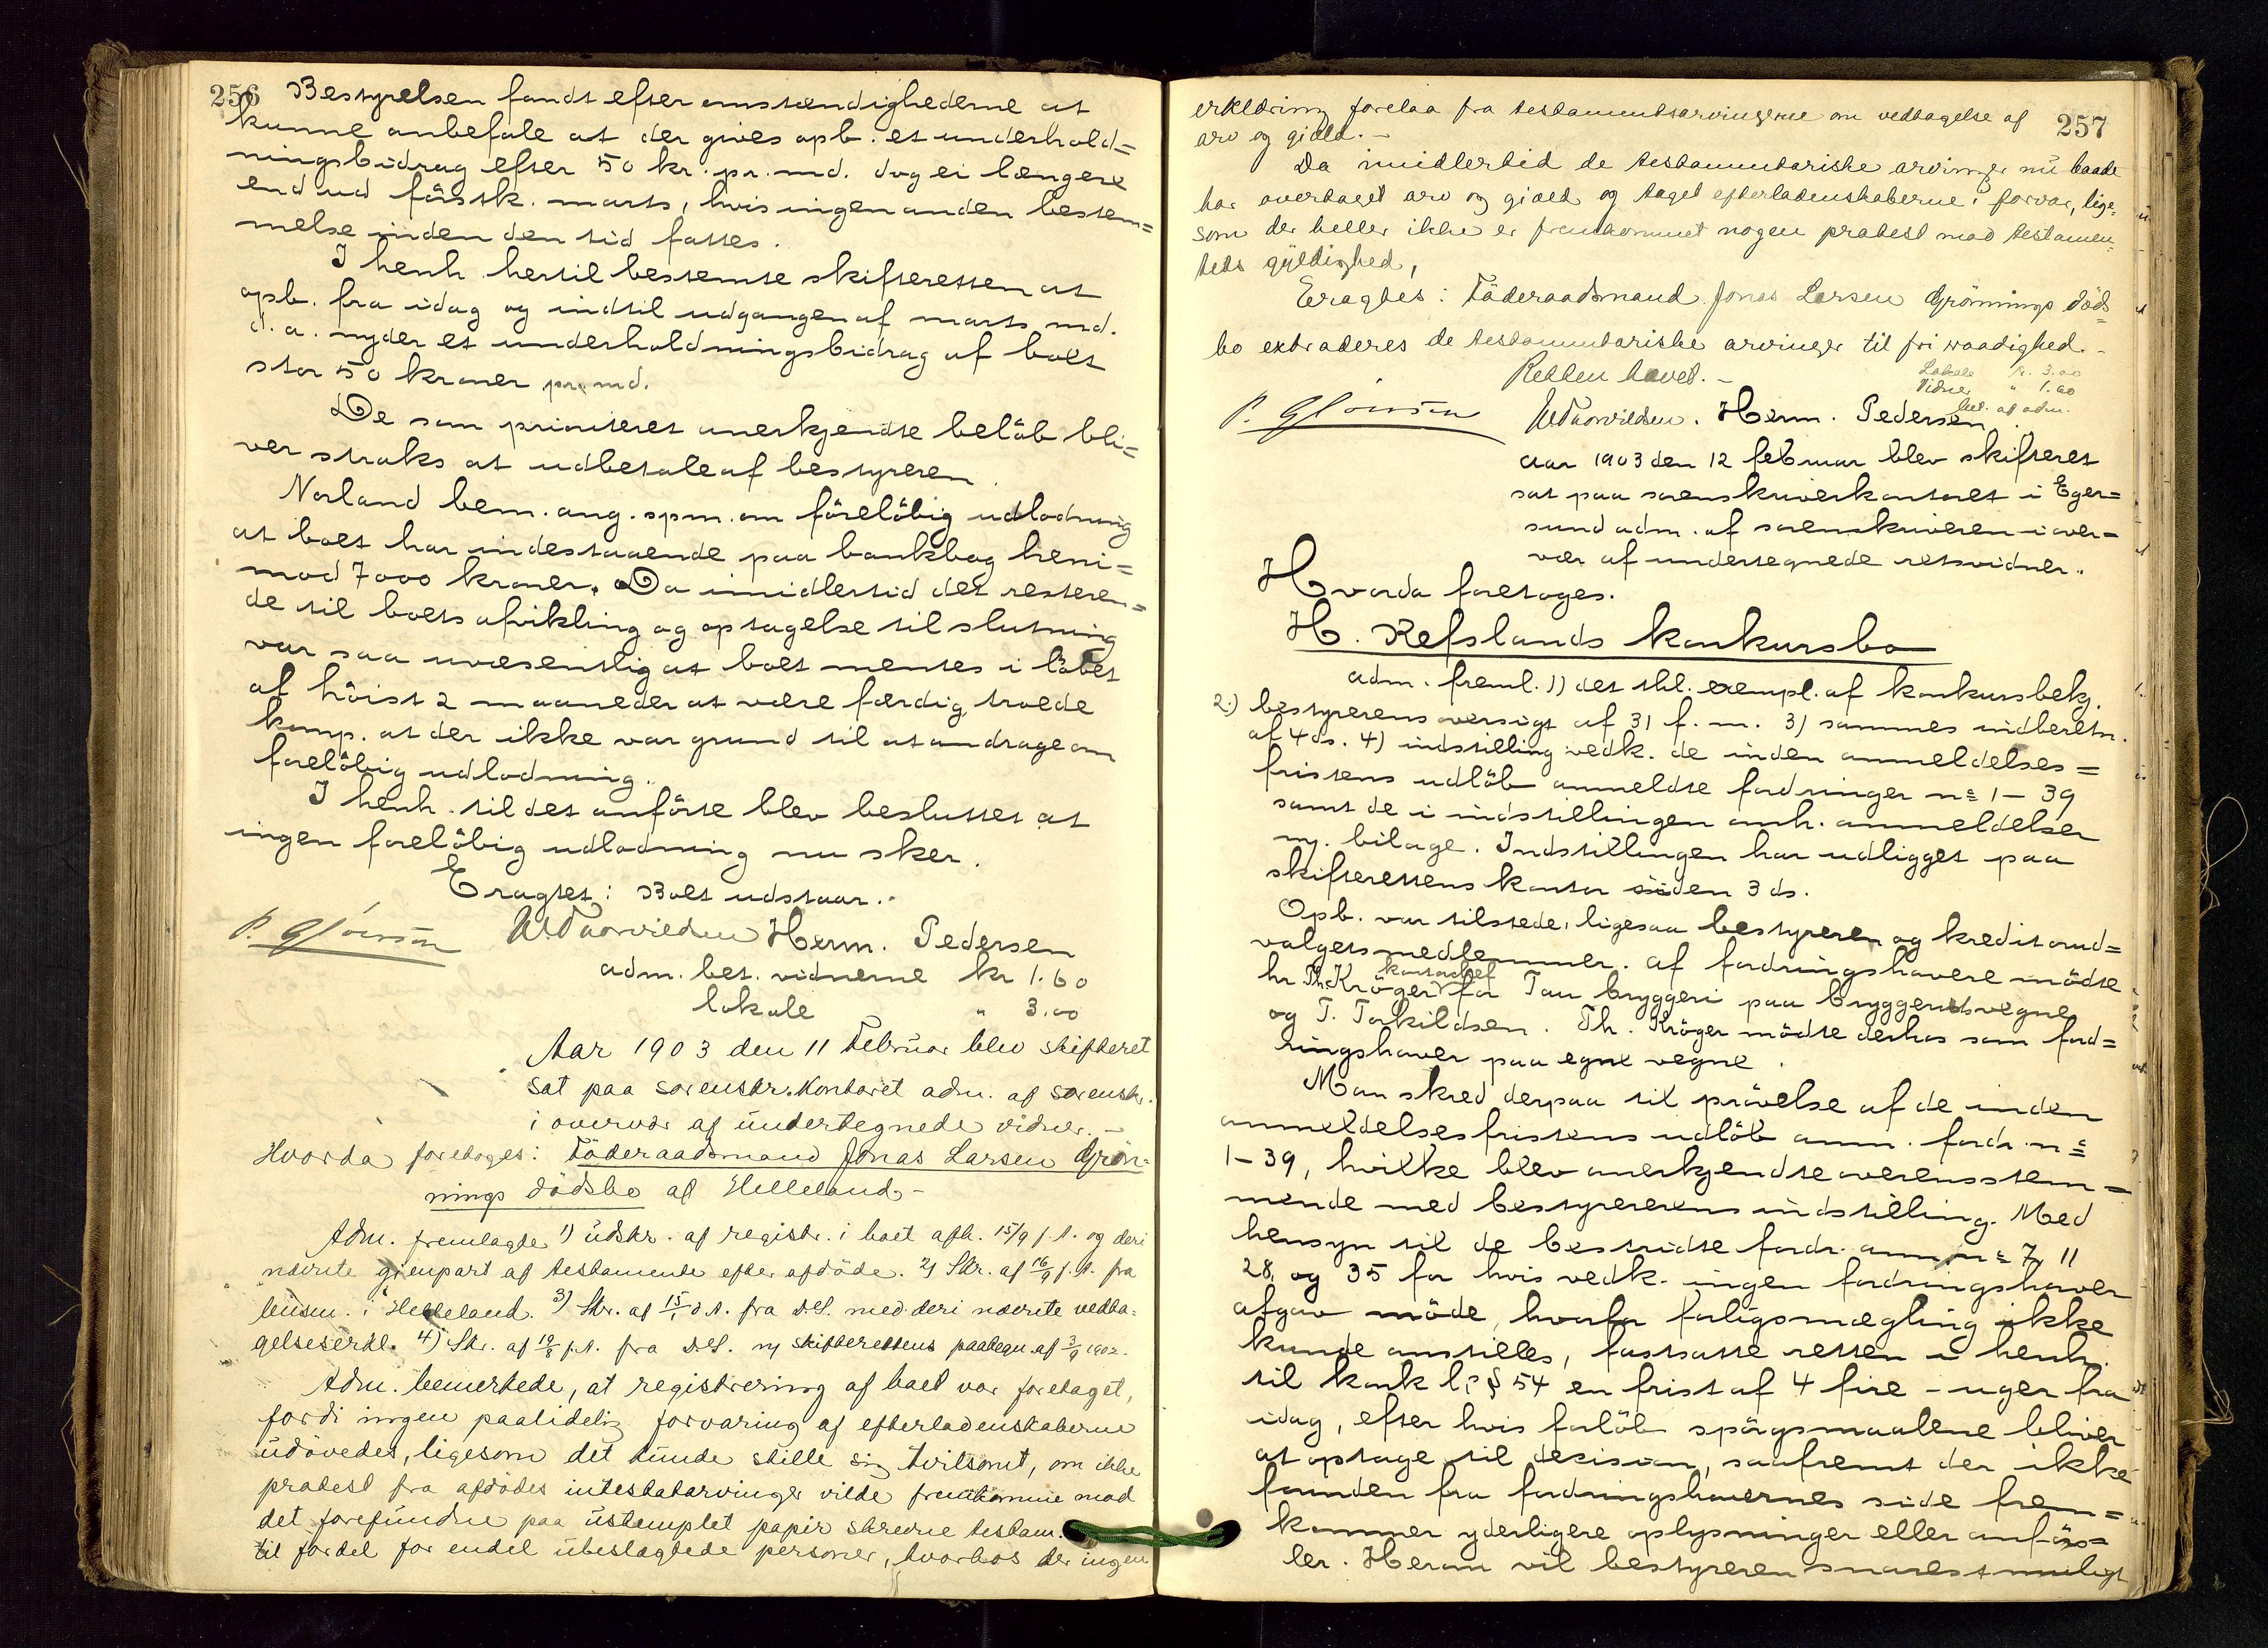 256
Bestyrelsen fandt efter omstændighederne at
kunne anbefale at der gives opb. et underhold=
ningsbidrag efter 50 kr. pr. md. dog ei længere
end ud førstk. marts, hvis ingen anden bestem=
melse inden den tid fattes.
I henh. hertil bestemte skifteretten at
opb. fra idag og indtil udgangen af marts md.
d.a. nyder et underholdningsbidrag af boet
stor 50 kroner pr. md.
De som prioriteret anerkjendte beløb bli=
ver straks at udbetale af bestyreren.
Norland bem. ang. spm. om føreløbig udlodning
at boet har indestaaende paa bankbog heni=
mod 7000 kroner. Da imidlertid det resteren=
de til boets afvikling og optagelse til slutning
var saa uvæsentlig at boet mentes i løbet
af høist 2 maaneder at være færdig, troede
komp. at der ikke var grund til at andrage om
foreløbig udlodning.
I henh. til det anførte blev besluttet at
ingen foreløbig udlodning nu sker.
Eragtet: Boet udstaar.
Herm. Pedersen
adm. bet. vidnerne kr 1.60
lokale " 3.00
Aar 1903 den 11 Februar blev skifteret
sat paa sorenskr. Kontoret adm. af sorenskr.
i overvær af undertegnede vidner. -
Hvorda foretoges: Föderaadsmand Jonas Larsen Grøn=
nings dödsbo af Helleland -
Adm. fremlagte 1) udskr. af registr. i boet afh. 15/9 f.A. og deri
nævnte gjenpart af testamente efter afdöde. 2) Skr. af 16/9 f.A. fra
lensm. i Helleland. 3) Skr. af 15/1 d.A. fra DS. med deri nævnte vedta=
gelseserkl. 4) Skr. af 19/8 f.A. fra DS. m/ skifterettens paategn. af 3/9 1902.
Adm. bemerkede, at registrering af boet var foretaget,
fordi ingen paalidelig forvaring af efterladenskaberne
udövedes, ligesom det kunde stille sig tvilsomt, om ikke
protest fra afdödes intestatarvinger vilde fremkomme mod
det forefundne paa ustemplet papir skrevne testam.
til fordel for endel ubeslægtede personer, hvorhos der ingen
257
erklæring forelaa fra testamentsarvingerne om vedtagelse af
arv og gjæld. -
Da imidlertid de testamentariske arvinger nu baade
har overtaget arv og gjæld og taget efterladenskaberne i forvar, lige=
som der heller ikke er fremkommet nogen protest mod testamen=
tets gyldighed,
Eragtes: Föderaadsmand Jonas Larsen Grönnings döds=
bo extraderes de testamentariske arvinger til fri raadighed. -
Retten hævet. -
Lokale kr. 3.00
Vidner " 1.60
bet. af adm.
Herm. Pedersen
Aar 1903 den 12 februar blev skifteret
sat paa sorenskriverkontoret i Eger=
sund adm. af sorenskriveren i over=
vær af undertegnede retsvidner.
Hvorda foretoges.
H. Refslands konkursbo
adm. freml. 1) det thl. exempl. af konkursbekj.
2.) bestyrerens oversigt af 31 f.m. 3) sammes indberetn.
af 4 ds. 4) indstilling vedk. de inden anmeldelses=
fristens udløb anmeldte fordringer no 1 - 39
samt de i indstillingen omh. anmeldelser
m. bilage. Indstillingen har udligget paa
skifterettens kontor siden 3 ds.
Opb. var tilstede, ligesaa bestyreren og kreditorud=
valgets medlemmer. af fordringshavere mødte
hr Th. Krøger kontorchef for Tou bryggeri paa bryggeriets vegne
og T. Torkildsen. Th. Krøger mødte derhos som ford=
ringshaver paa egne vegne.
Man skred derpaa til prøvelse af de inden
anmeldelsesfristens udløb anm. fordr. no
1-39, hvilke blev anerkjendte overensstem=
mende med bestyrerens indstilling. Med
hensyn til de bestridte fordr. anm no 7, 11
28, og 35 for hvis vedk. ingen fordringshaver
afgav møde, hvorfor forligsmægling ikke
kunde anstilles, fastsatte retten i henh.
til konk l. § 54 en frist af 4 fire - uger fra
idag, efter hvis forløb spørgsmaalene bliver
at optage til decision, saafremt der ikke
forinden fra fordringshavernes side frem=
kommer yderligere oplysninger eller anførs=
ler. Herom vil bestyreren snarest muligt